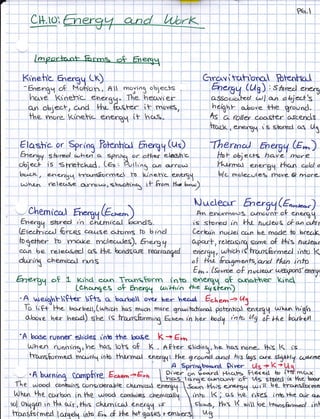 PG.1
CH.10: Energy and Work
Important Forms of Energy
Kinetic Energy (K)
-Energy of Motion. All moving objects
have Kinetic energy. The heavier
an object, and the faster it moves,
the more Kinetic energy it has.
Gravitational Potential
Energy (Ug): Stored energy
associated w/ an object's
height above the ground.
As a roller coaster ascends
track, energy is stored as Ug
Elastic or Spring Potential Energy (Us)
Energy stored when a spring or other elastic
object is stretched. (Ex: Pulling an arrow
back, energy transformed to kinetic energy
when release arrow, shooting it from the bow)
Thermal Energy (Em)
Hot objects have more
thermal energy than cold
b/c molecules move more
Chemical Energy (Echem)
Energy stored in chemical bonds.
(Electrical forces cause atoms to bind
together to make molecules). Energy
can be released as the bonds are rearranged
during chemical rxns
Nuclear Energy (Enuclear)
An enormous amount of energy
is stored in the nucleus of an atom
Certain nuclei can be made to break
apart, releasing some of this nuclear
energy, which is transformed into K
of the fragments, and then into
Em. (Source of nuclear weapons energy
Energy of 1 kind can Transform into energy of another kind
(Changes of Energy within the System)
· A weightlifter lifts a barbell over her head Echem → Ug
To lift the barbell, (which has much more gravitational potential energy when high
above her head) she is transforming Echem in her body into Ug of the barbell
· A base runner slides into the base K → Em
When running, he has lots of K. After sliding, he has none. This K is
transformed mainly into thermal energy: the ground and his legs are slightly warme
· A Springboard Diver Us → K → Ug
· A burning Campfire Echem → Em
The wood contains considerable chemical energy.
When the carbon in the wood combines chemically
w/ Oxygen in the air, this chemical energy is
transformed largely into Em of the hot gases & embers
has large amount of Us stored in the boar
Soon this energy will be transformed
into K; as he rises into the air a